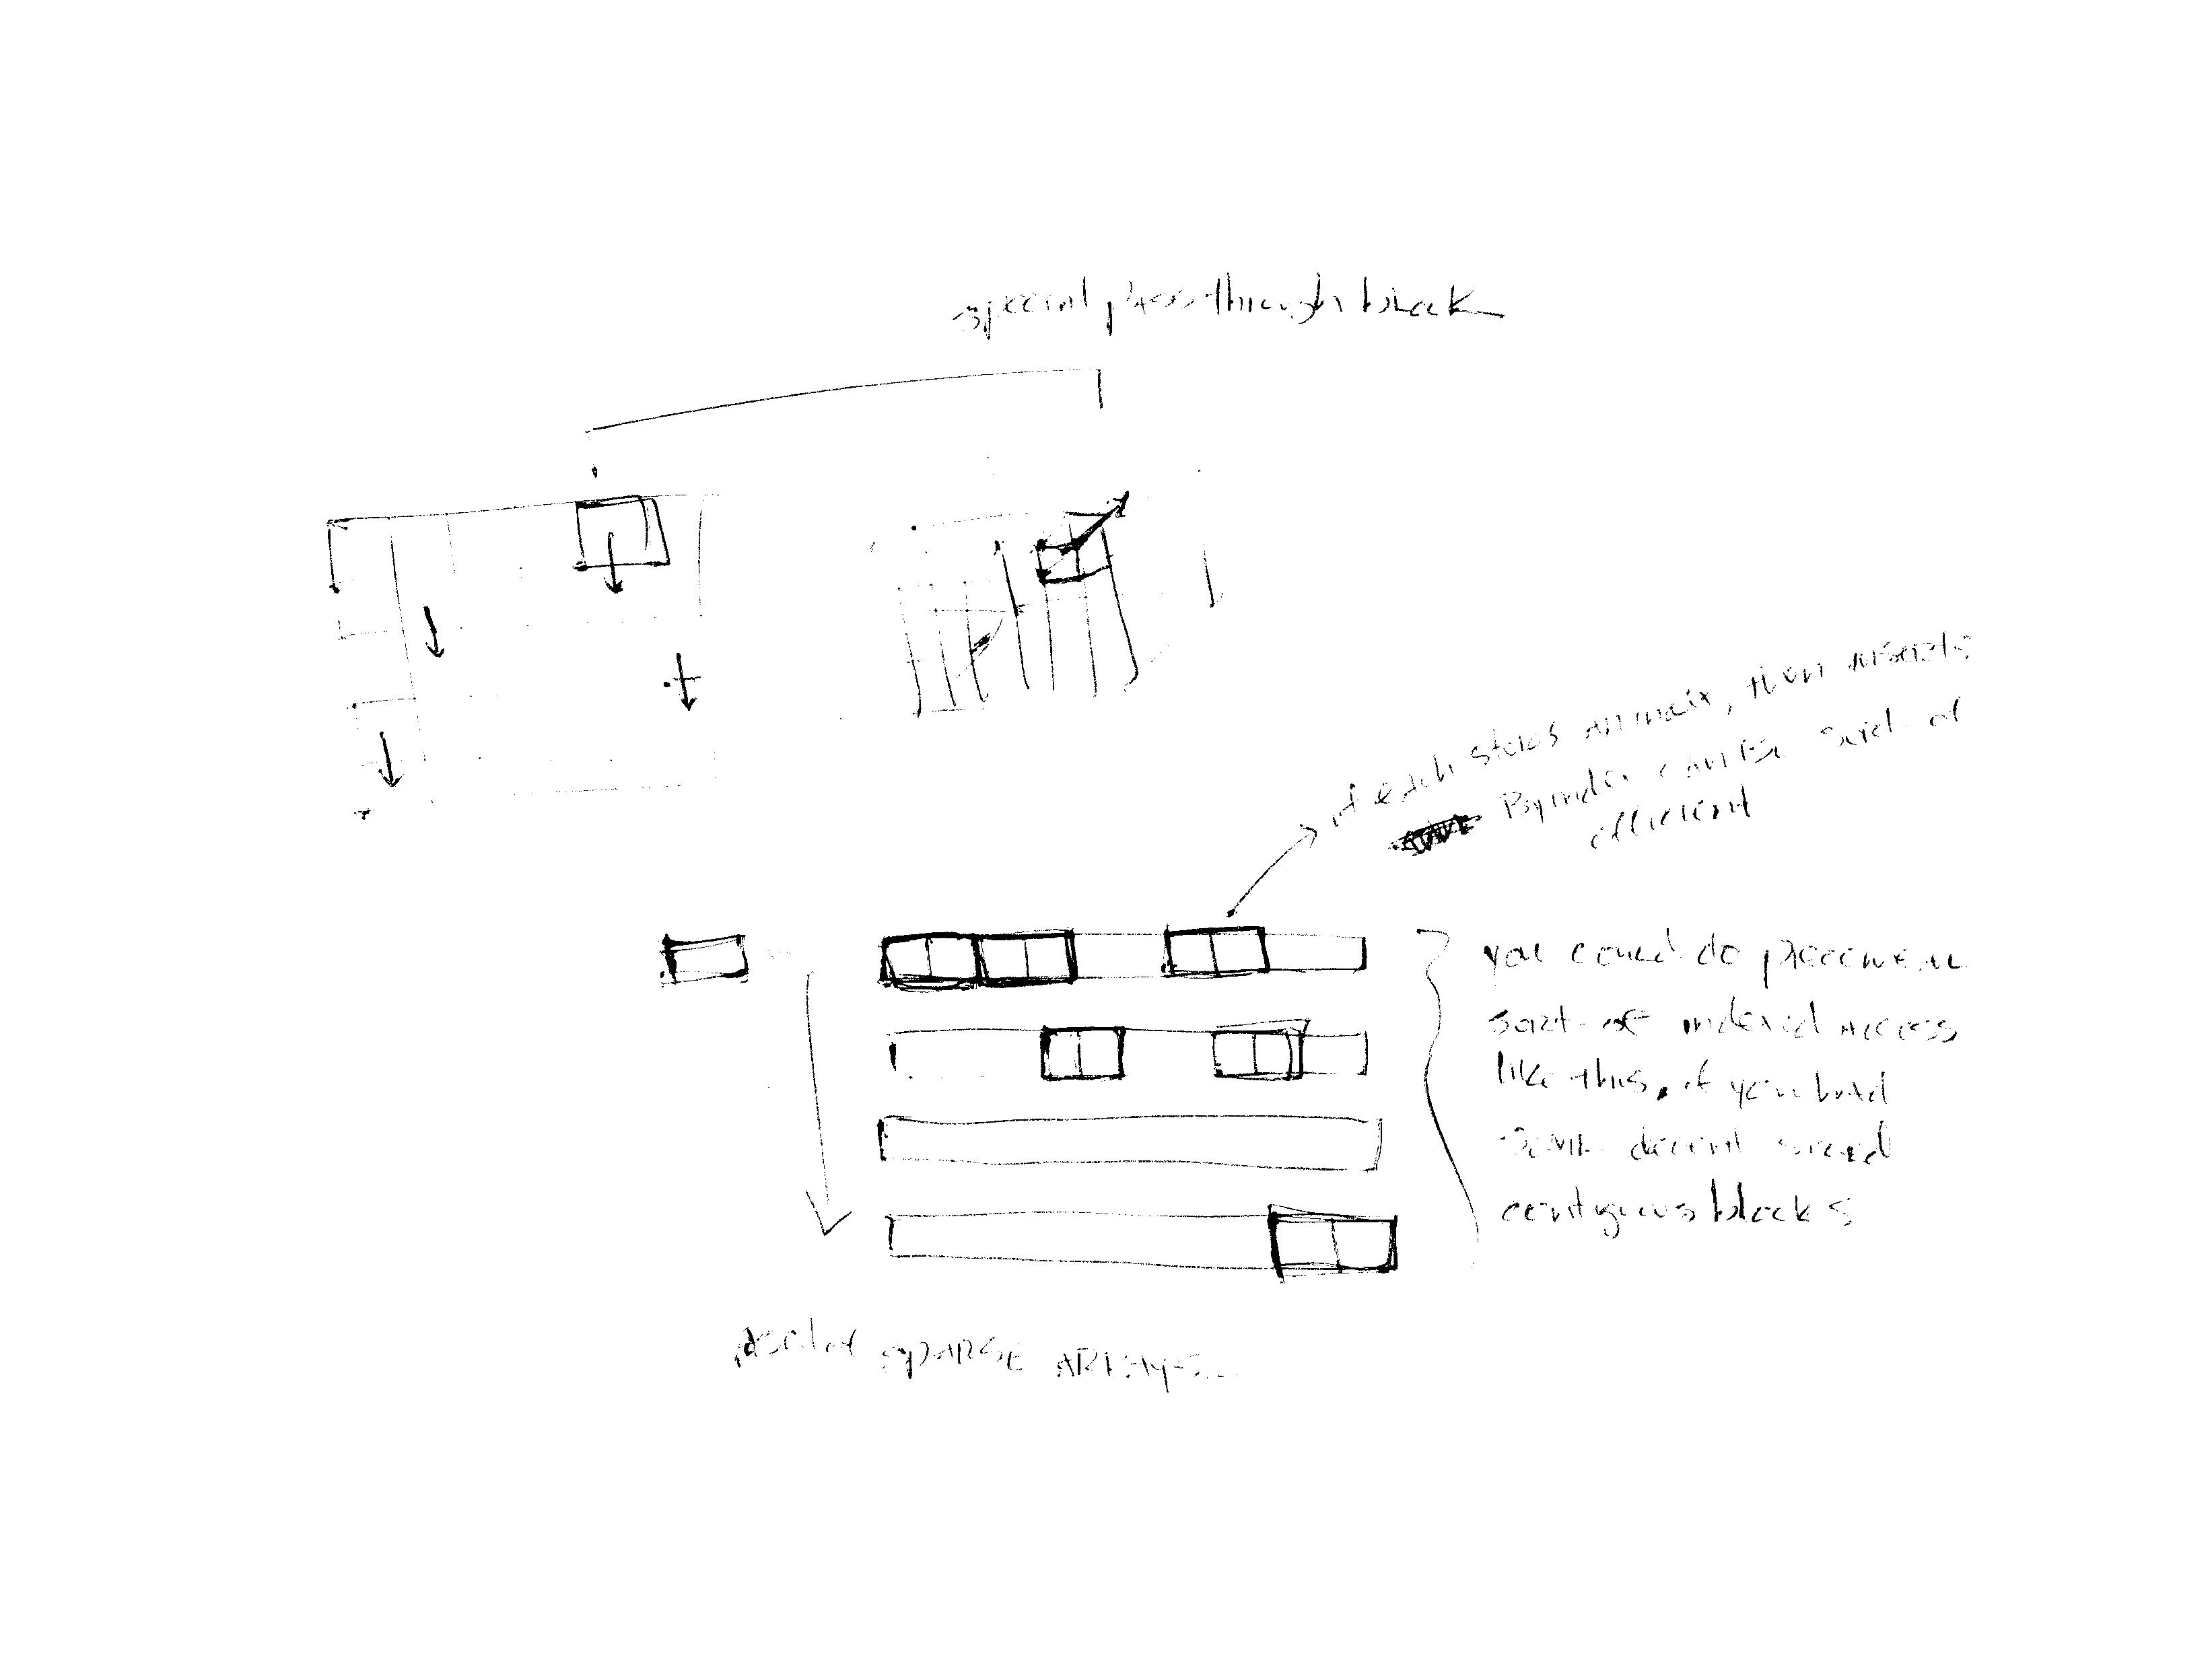 special pass through block
if each stores an index, then inserts
By index can be sort of
efficient
you could do piecewise
sort-of indexed access
like this, if you had
some decent sized
contiguous blocks
sparse arrays...